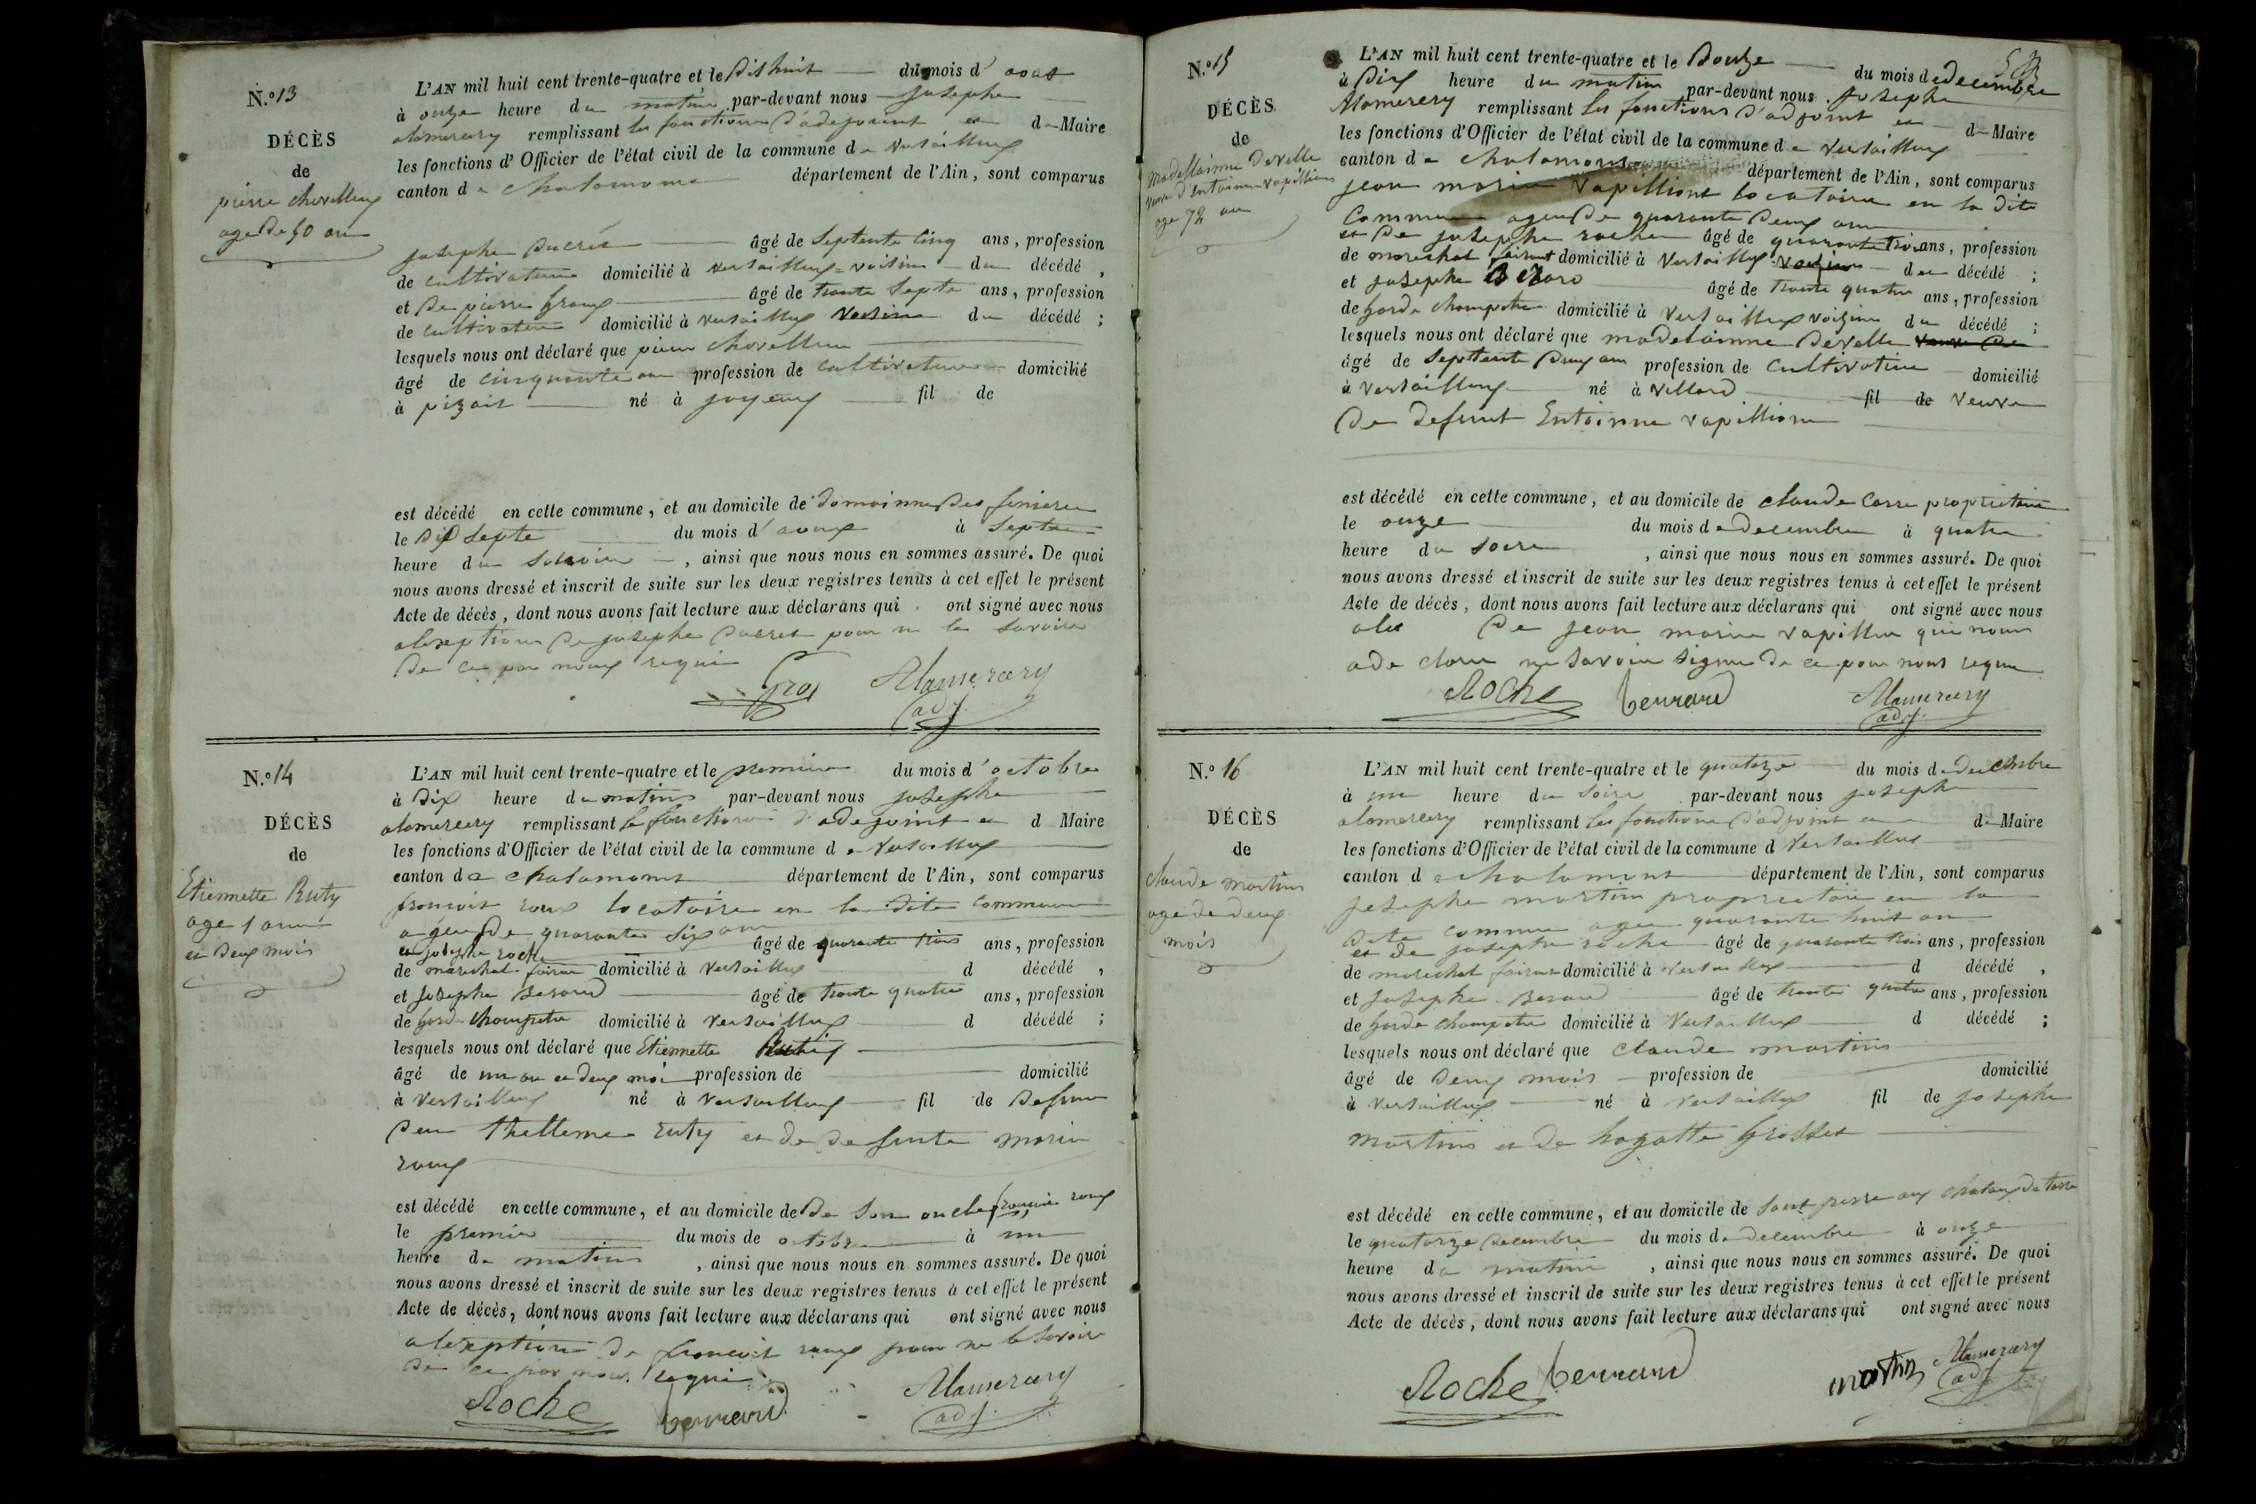 N.º 13
DÉCÈS
de
pierre chevelleux
age de 50 an
L'AN mil huit cent trente-quatre et le Dishuit du mois d' aout
à onze heure du matin par-devant nous Josephe
alamercery remplissant les fonctions d'adejoint et d Maire
les fonctions d'Officier de l'état civil de la commune de Versailleux
canton de chalamont département de l'Ain, sont comparus
Josephe Ducrét âgé de Septente cinq ans, profession
de cultivateur domicilié à versailleux voisin du décédé,
et De pierre Groux âgé de trante Septe ans, profession
de cultivateur domicilié à versailleux Voisin du décédé;
lesquels nous ont déclaré que pierre chevelleu
âgé de cinquante an profession de cultivateur domicilié
à pizais né à joyeux fil de
est décédé en cette commune, et au domicile de Domainne des
le Dix Septe du mois d' aoux à Septe
heure du , ainsi que nous nous en sommes assuré. De quoi
nous avons dressé et inscrit de suite sur les deux registres tenus à cet effet le présent
Acte de décès, dont nous avons fait lecture aux déclarans qui ont signé avec nous
alexeption De josephe Ducret pour ne le savoire
De ce par nous requi
Gros Alamercery
adj.
N.º 14
DÉCÈS
de
Etiennette Ruty
age 1 anné
et Deux mois
L'AN mil huit cent trente-quatre et le premier du mois d' octobre
à Dix heure du matin par-devant nous josephe
alamercery remplissant le fonction d'adejoint et d Maire
les fonctions d'Officier de l'état civil de la commune de Versailleux
canton de chalamont département de l'Ain, sont comparus
françoit roux locataire en la dite commune
agée de quarante six ans
et josephe roche âgé de quarante trois ans, profession
de marechal fairan domicilié à versailleux d décédé,
et Josephe Berard âgé de trante quatre ans, profession
de garde champetre domicilié à versailleux d décédé;
lesquels nous ont déclaré que Etiennette Rutiy
âgé de un an et deux moi profession de domicilié
à Versailleux né à versailleux fil de Defun
Deu thelleme Ruty et de defunte marie
roux
est décédé en cette commune, et au domicile de De Son oncle françoie roux
le premier du mois de octobre à un
heure du matin , ainsi que nous nous en sommes assuré. De quoi
nous avons dressé et inscrit de suite sur les deux registres tenus à cet effet le présent
Acte de décès, dont nous avons fait lecture aux déclarans qui ont signé avec nous
alexeption de françoit roux pour ne le savoir
De ce par nous requi
Roche berrard Alamercery
adj.
N.º 15
DÉCÈS
de
Madellainne Develle
veuve d'Entoinne vapillions
age 72 an
L'AN mil huit cent trente-quatre et le Douze du mois de decembre
à Dix heure du matin par-devant nous Josephe
Alamercery remplissant les fonctions d'adjoint et d Maire
les fonctions d'Officier de l'état civil de la commune de Versailleux
canton de chalamon département de l'Ain, sont comparus
jean marie vapilliont locataire en la dite
Commune agée De quarante Deux an
et De josephe roche âgé de quarante trois ans, profession
de marechal fairant domicilié à Versailleux voisin du décédé;
et josephe Berard âgé de trante quatre ans, profession
de garde champetre domicilié à Versailleux voizin du décédé;
lesquels nous ont déclaré que madelainne Develle veuve De
âgé de Septente Deux ans profession de cultivatrice domicilié
à Versailleux né à Villard fil de veuve
De defunt Entoinne vapillion
est décédé en cette commune, et au domicile de claude Carre proprietaire
le onze du mois de decembre à quatre
heure du soire , ainsi que nous nous en sommes assuré. De quoi
nous avons dressé et inscrit de suite sur les deux registres tenus à cet effet le présent
Acte de décès, dont nous avons fait lecture aux déclarans qui ont signé avec nous
alex De jean marie vapillon qui nous
ade clare ne savoir signe de ce pour nous requi
Roche berrard Alamercery
adj.
N.º 16
DÉCÈS
de
claude martin
age de deux
mois
L'AN mil huit cent trente-quatre et le quatorze du mois de decembre
à une heure du soire par-devant nous josephe
alamercery remplissant les fonctions d'adjoint et de Maire
les fonctions d'Officier de l'état civil de la commune d Versailleux
canton de chalamont département de l'Ain, sont comparus
Josephe martin proprietaire en la
dite commune agée quarante huit an
et de josephe roche âgé de quarante trois ans, profession
de marechal fairan domicilié à Versailleux d décédé,
et josephe Berard âgé de trante quatre ans, profession
de garde champetre domicilié à Versailleux d décédé;
lesquels nous ont déclaré que claude martin
âgé de Deux mois profession de domicilié
à versailleux né à versailleux fil de josephe
martins et de hagatte Grosset
est décédé en cette commune, et au domicile de Sont perre aux
le quatorze decembre du mois de decembre à onze
heure du matin , ainsi que nous nous en sommes assuré. De quoi
nous avons dressé et inscrit de suite sur les deux registres tenus à cet effet le présent
Acte de décès, dont nous avons fait lecture aux déclarans qui ont signé avec nous
Roche berrard martin Alamercery
adj.